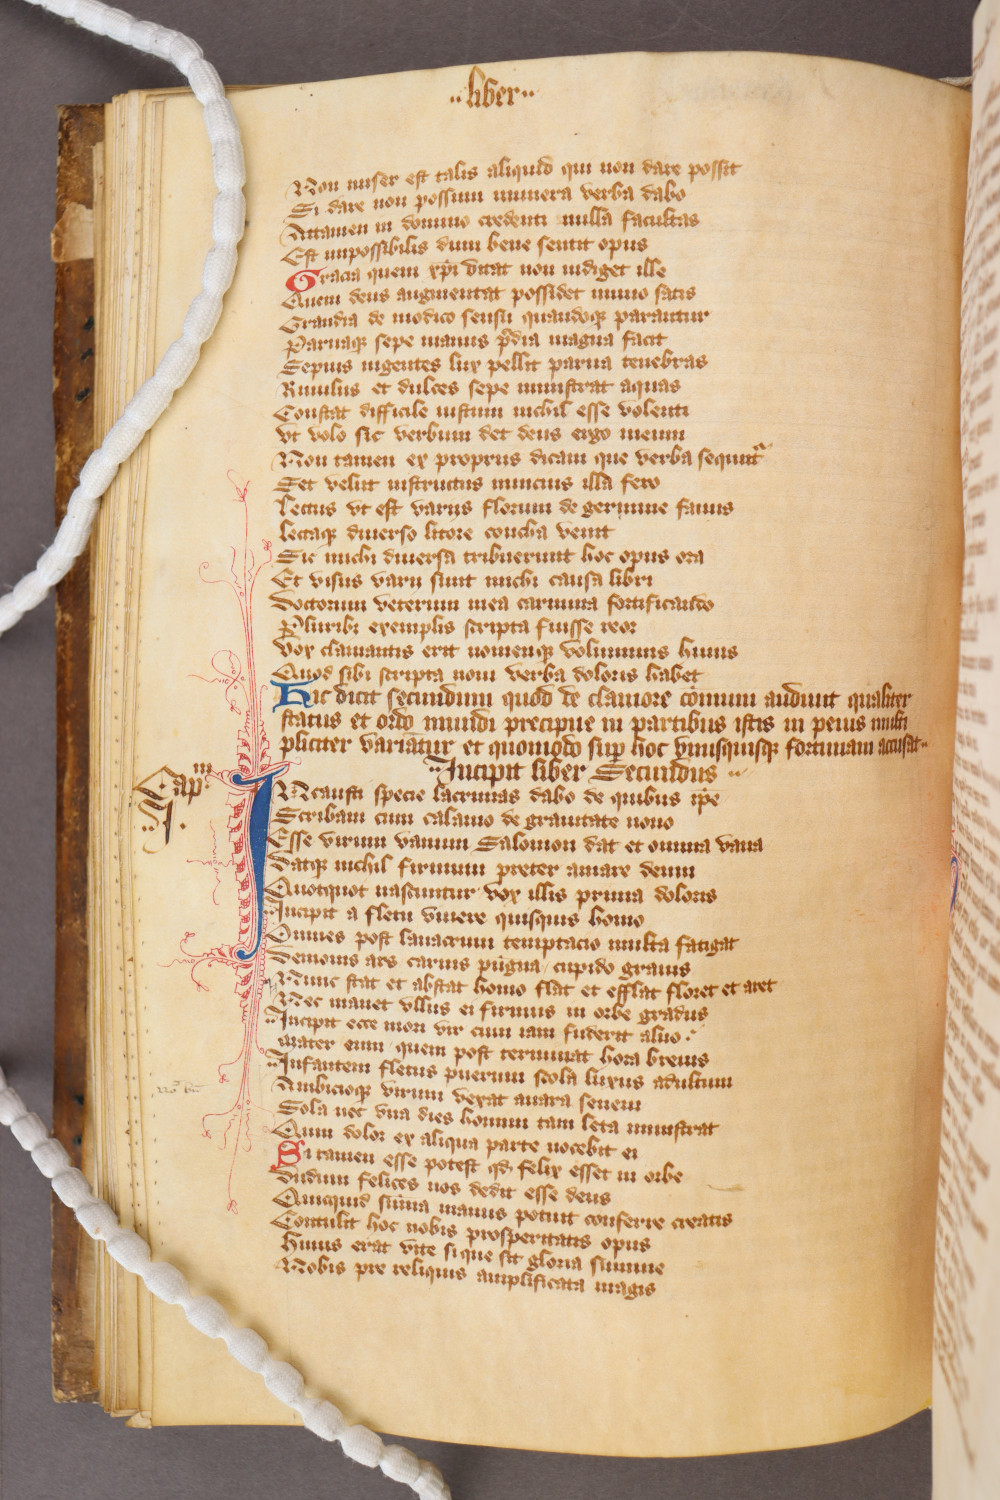 ·· liber ··
Non miser est talis aliquid qui non dare possit
Si dare non possum munera verba dabo
Attamen in domino credenti nulla facultas
Est impossibilis dum bene sentit opus
Gracia quem xpi ditat non indiget ille
Quem deus augmentat possidet immo satis
Grandia de modico sensu quandoqꝫ parantur
Paruaqꝫ sepe manus pdia magna facit
Sepius ingentes lux pellit parua tenebras
Riuulus et dulces sepe ministrat aquas
Constat difficile iustum nichil esse volenti
vt volo sic verbum det deus ergo meum
Non tamen ex propriis dicam que verba sequntr
Set velut instructus nuncius illa fero
Lectus vt est variis florum de germine fauus
lectaqꝫ diuerso litore concha venit
Sic michi diuersa tribuerunt hoc opus ora
Et visus varii sunt michi causa libri
Doctorum veterum mea carmina fortificando
Pluribꝫ exemplis scripta fuisse reor
vox clamantis erit nomenqꝫ voluminis huius
Quod sibi scripta noui verba doloris habet
Hic dicit secundum quod de clamore cōmuni audiuit qualiter
status et ordo mundi precipue in partibus istis in peius multi
pliciter variatur et quomodo sup hoc vnusquisqꝫ fortunam accusat··
·· Incipit liber Secundus ··
Capm
·I·
INcausti specie lacrimas dabo de quibus ipe
Scribam cum calamo de grauitate nouo
Esse virum vanum Salomon dat et omnia vana
Datqꝫ nichil firmum preter amare deum
Quotquot nascuntur vox illis prima doloris
Incipit a fletu viuere quisquis homo
Omnes post lauacrum temptacio multa fatigat
Demonis ars carnis pugna cupido grauis
Nunc stat et abstat homo flat et efflat floret et aret
Nec manet vllus ei firmus in orbe gradus
··Incipit ecce mori vir cum iam fuderit aluo
mater eum quem post terminat hora breuis
··Infantem fletus puerum scola luxus adultum
Ambicioqꝫ virum vexat auara senem
Sola nec vna dies homini tam leta ministrat
Quin dolor ex aliqua parte nocebit ei
Si tamen esse potest qd felix esset in orbe
Dudum felices nos dedit esse deus
Quicquid sūma manus potuit conferre creatis
Contulit hoc nobis prosperitatis opus
Huius erat vite si que sit gloria summe
Nobis pre reliquis amplificata magis